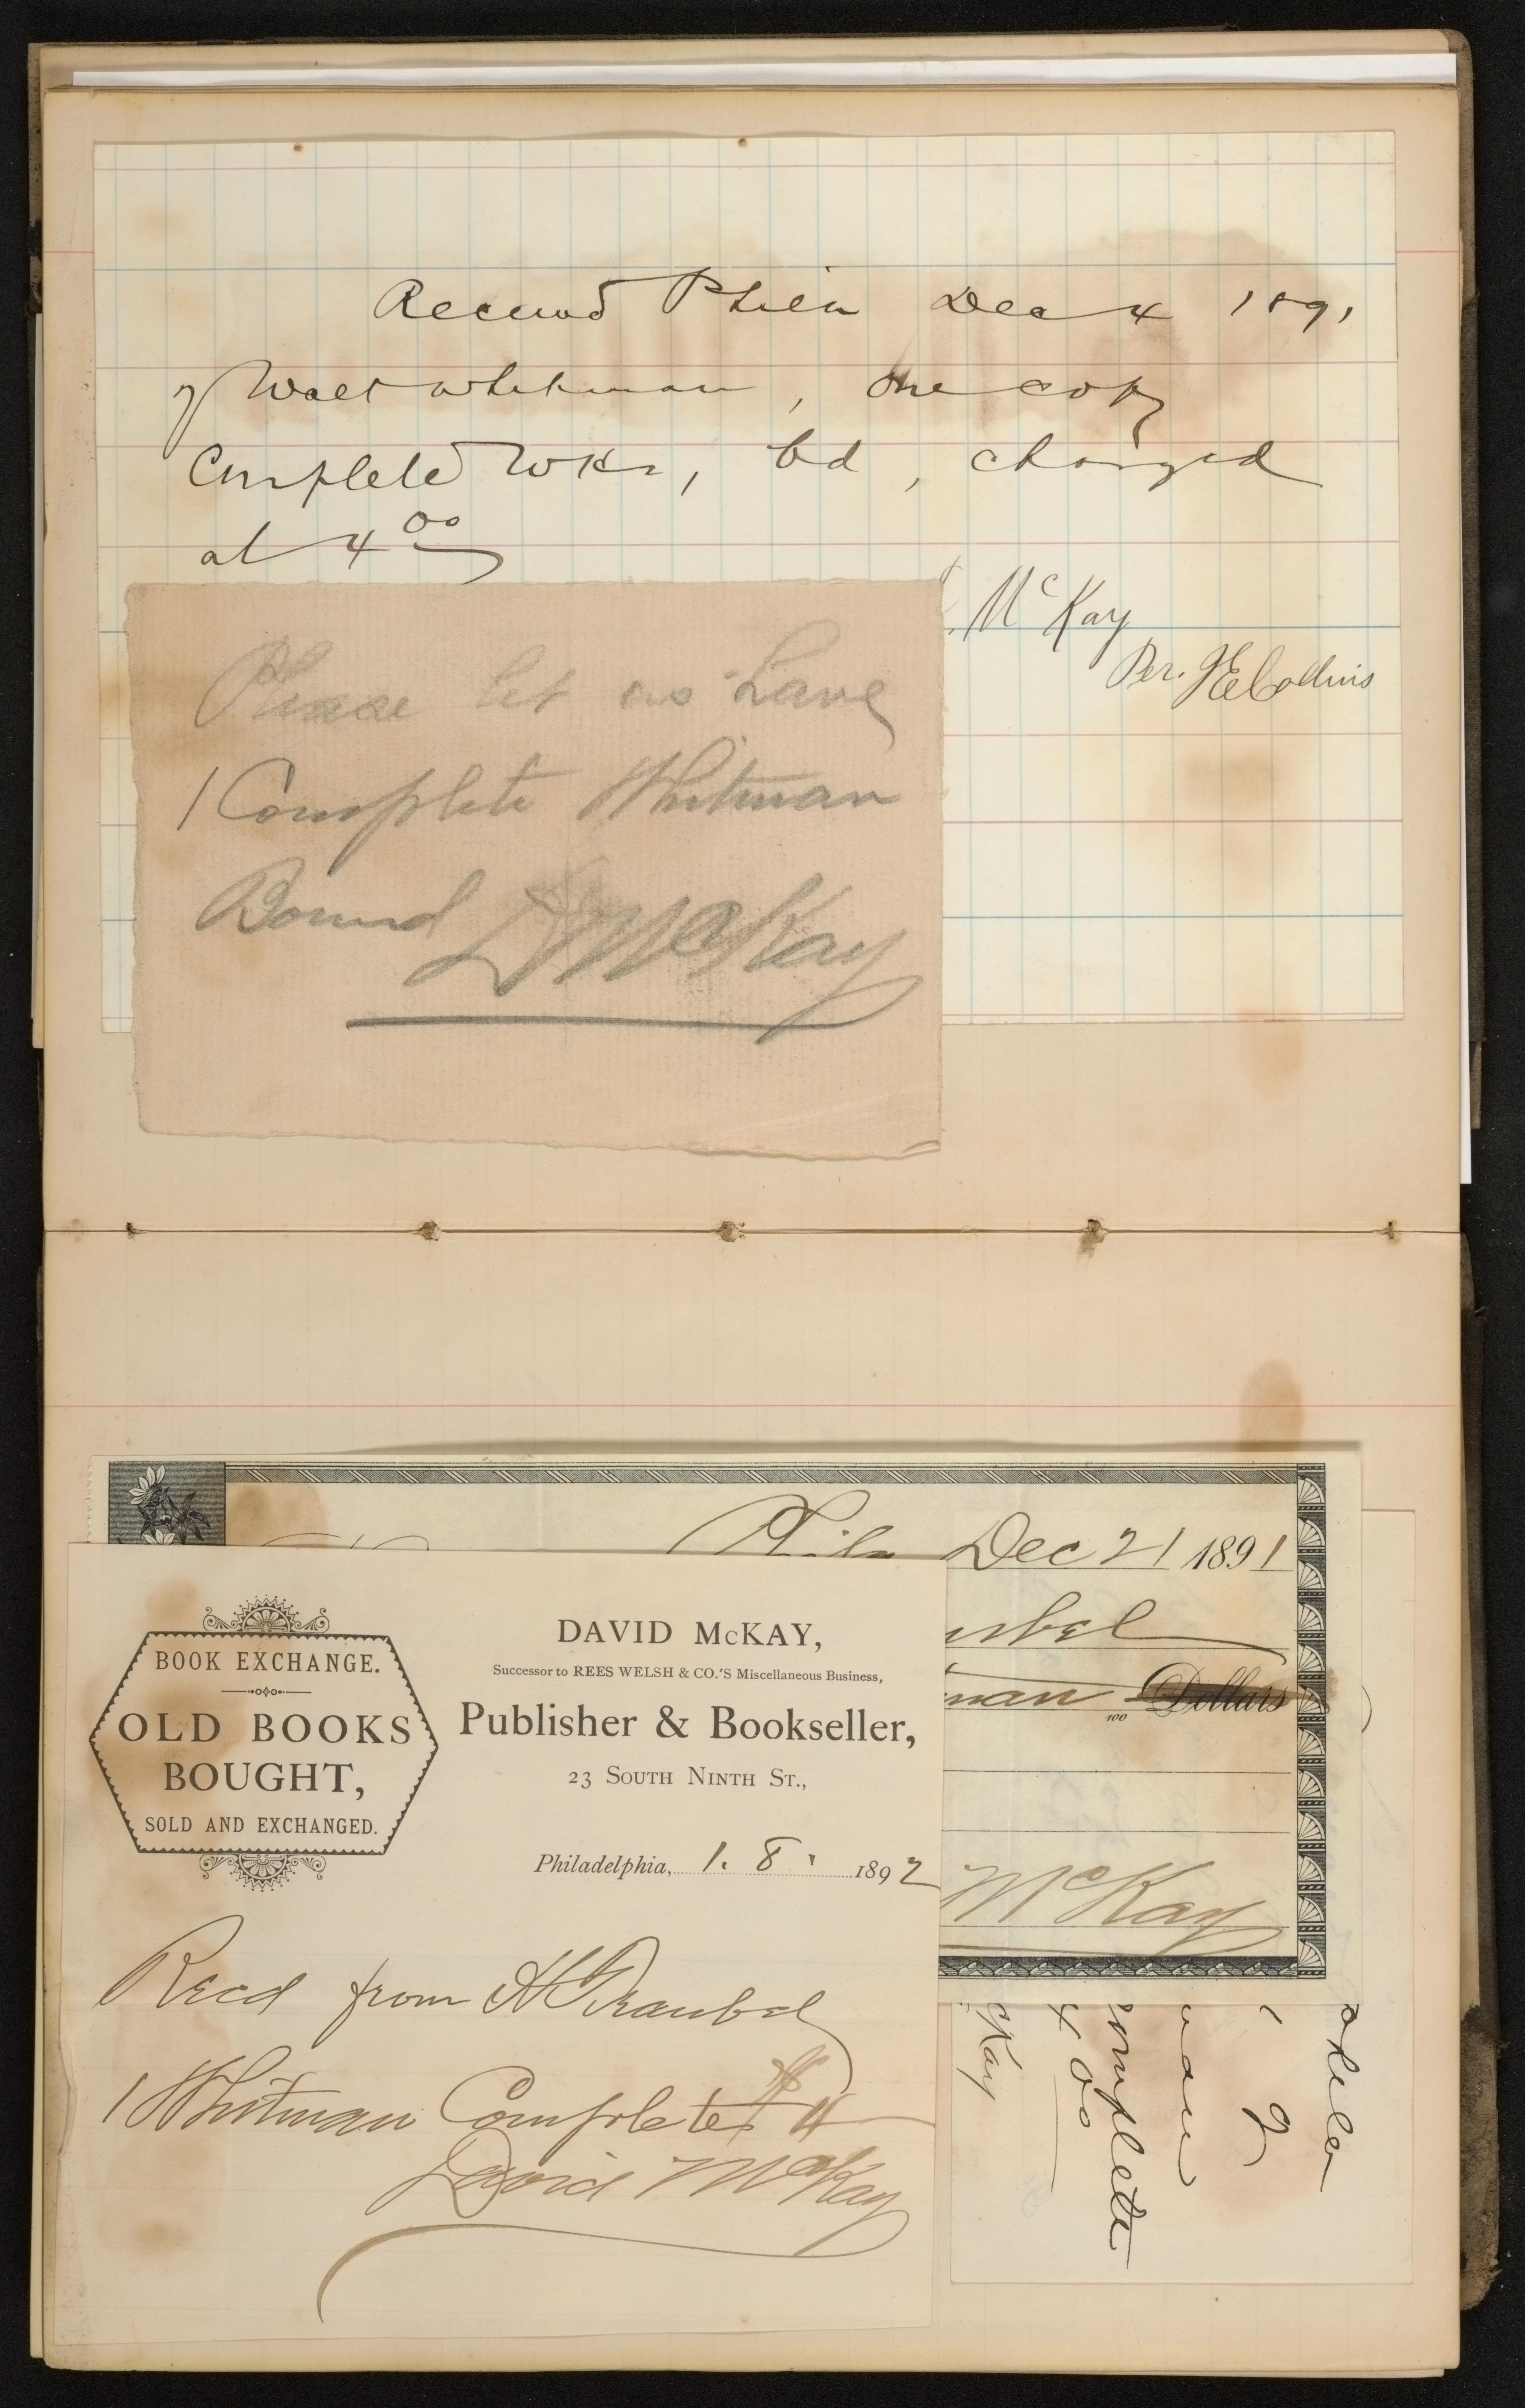 Received Phila Dec 4 1891
of Walt Whitman, One copy
Complete Wks, bd, charged
at 4 00
McKay
Per. JE Collins
Please let us have
1 Complete Whitman
Bound D McKay
Phila Dec 21 1891
ubel
man Dollars
100
McKay
BOOK EXCHANGE.
OLD BOOKS
BOUGHT,
SOLD AND EXCHANGED.
DAVID McKAY,
Successor to REES WELSH & CO.'S Miscellaneous Business,
Publisher & Bookseller,
23 SOUTH NINTH ST.,
Philadelphia, 1. 8. 1892
Recd from H Traubel
1 Whitman Complete $4
David McKay
omplete
4 00
cKay